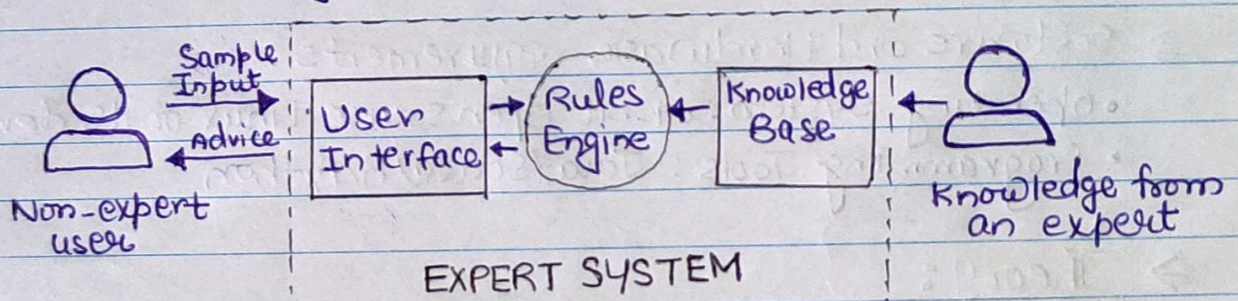 Sample
Input
Advice
Non-expert
user
User
Interface
Rules
Engine
Knowledge
Base
Knowledge from
an expert
EXPERT SYSTEM